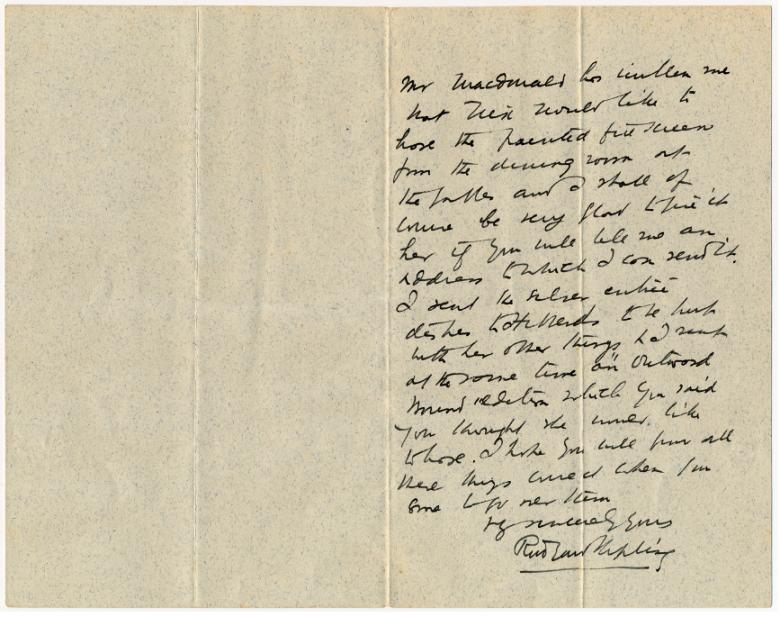 Mr Macdonald has written me
that Trix would like to
have the painted fire screen
from the dining room at
the Gables and I shall of
course be very glad to give it
her if you will tell me an
address to which I can send it.
I sent the silver entrée
dishes to to be kept
with her other things & I sent
at the same time an "Outward
Bound" edition which you said
you thought she would like
to have. I hope you will find all
these things correct when you
come to go over them
Vy sincerely yours
Rudyard Kipling